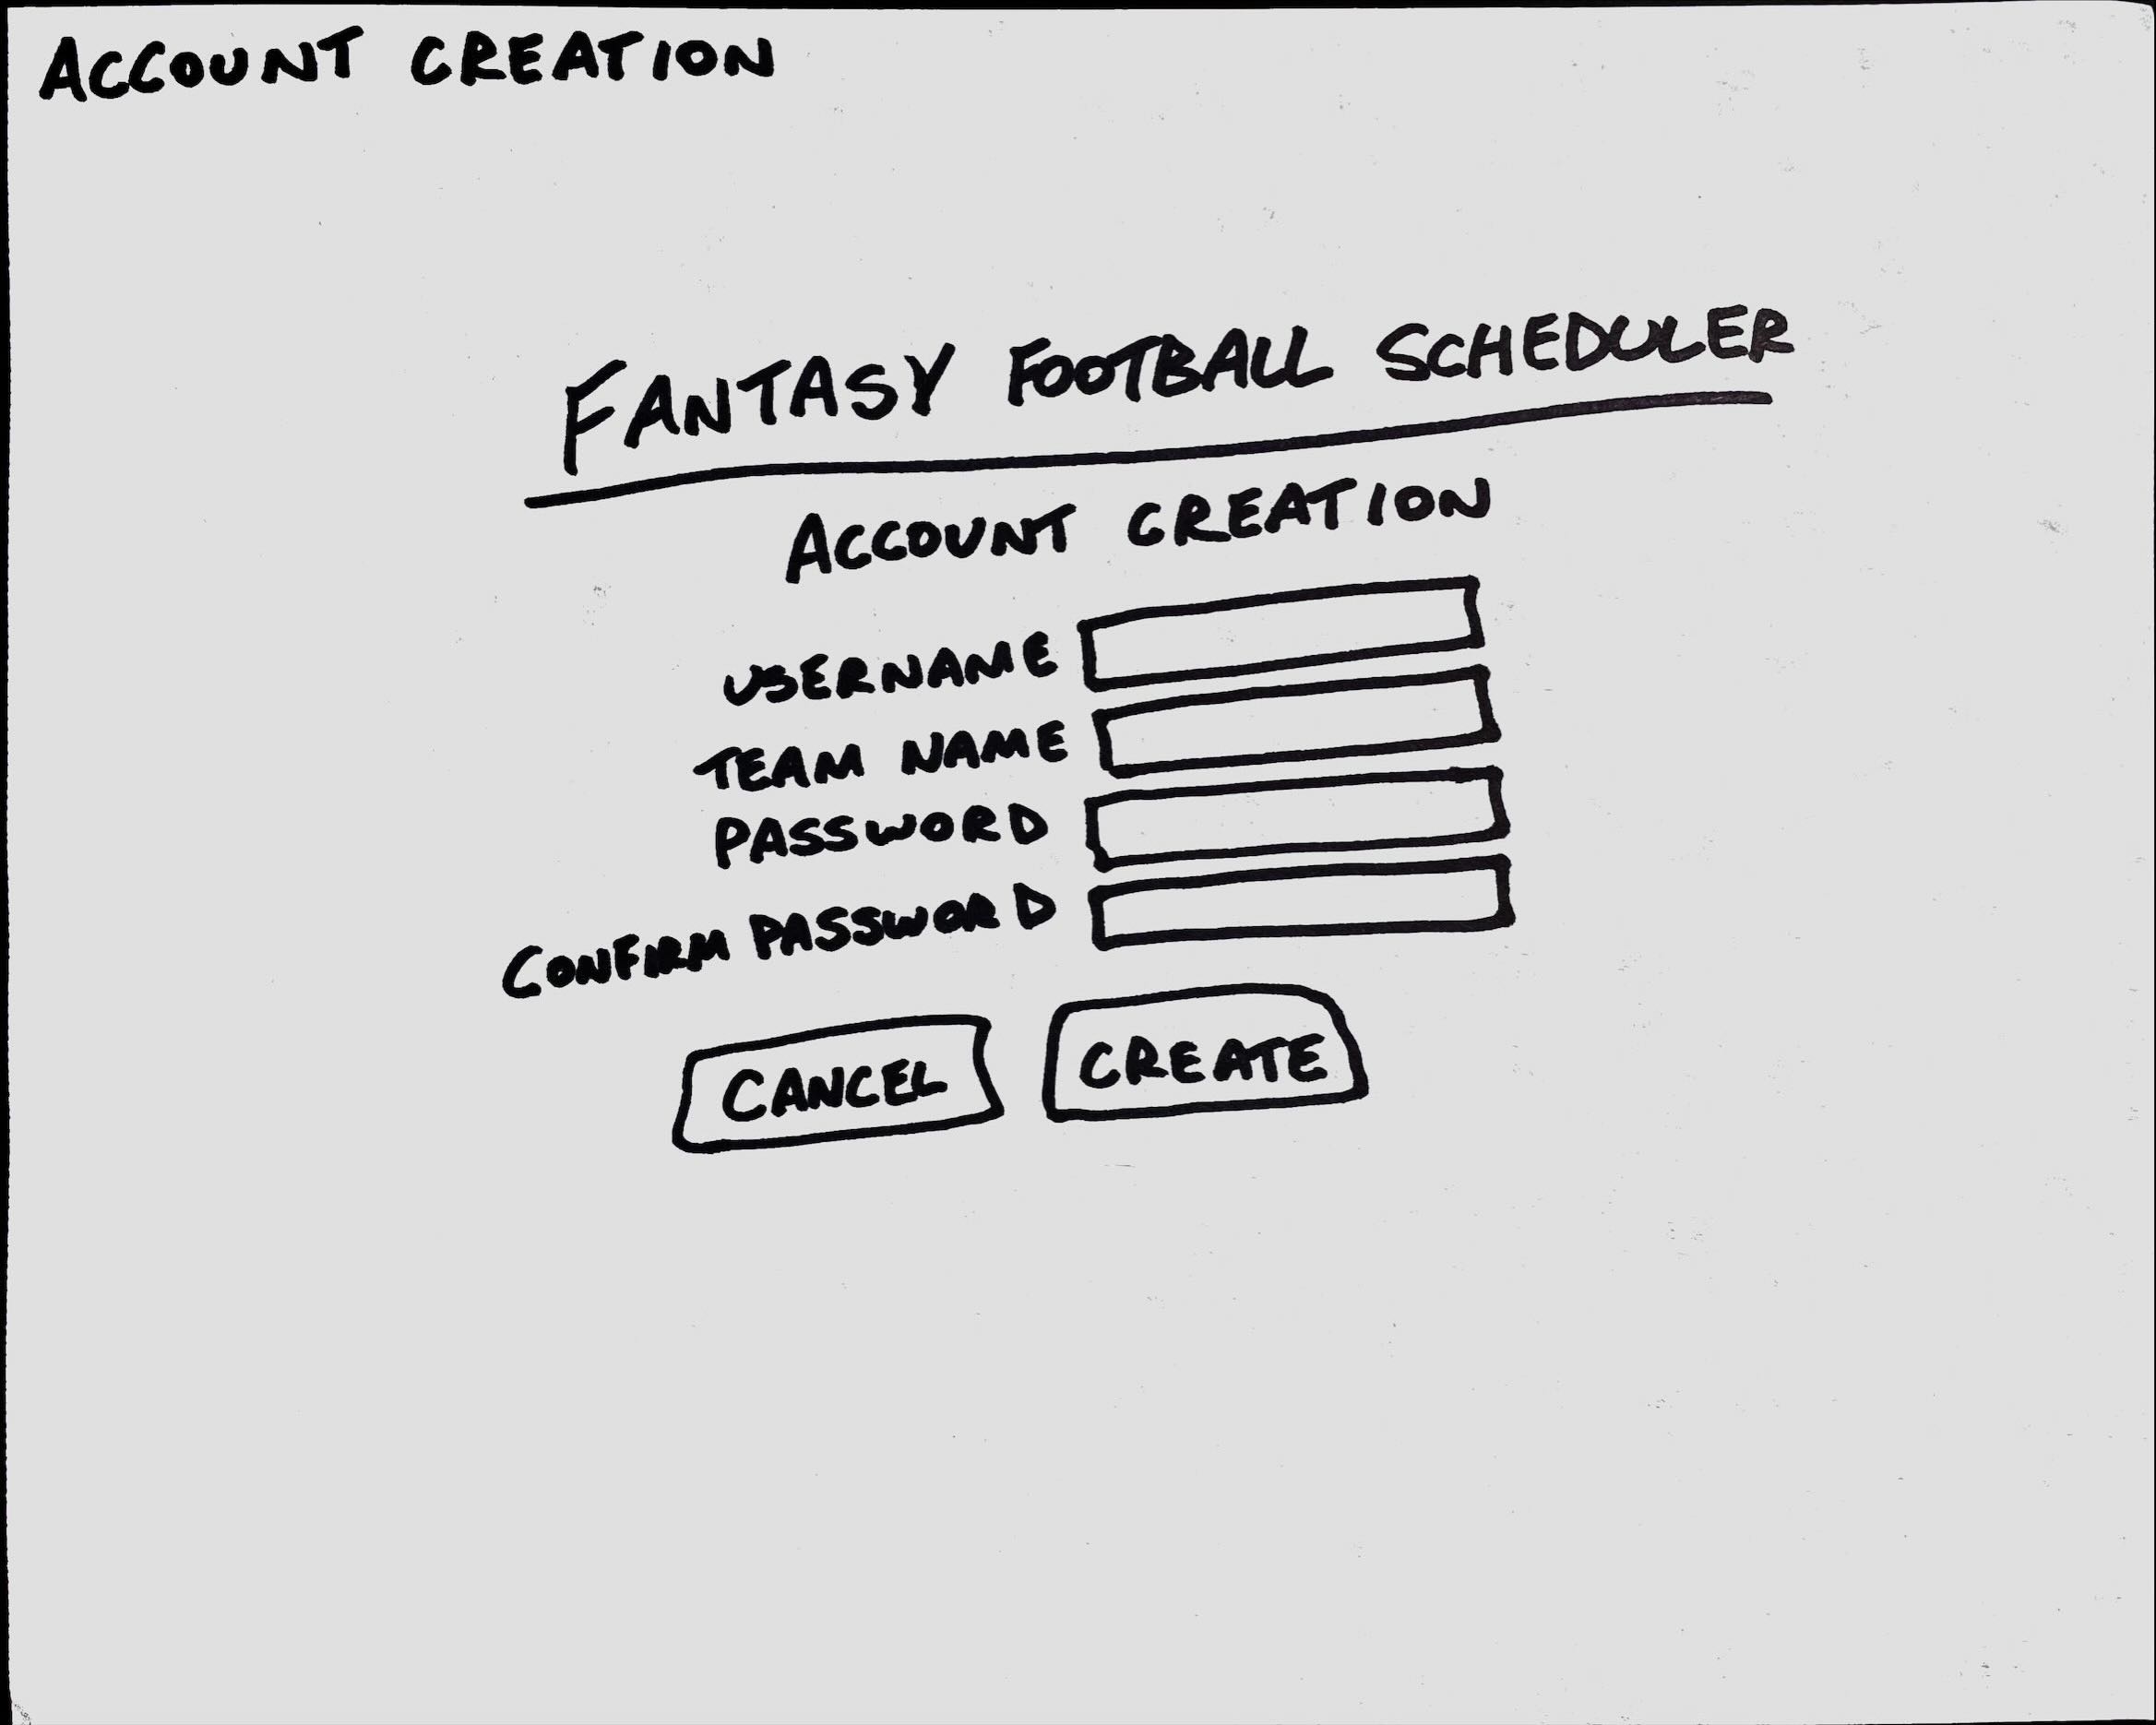 ACCOUNT CREATION
FANTASY FOOTBALL SCHEDULER
ACCOUNT CREATION
USERNAME
TEAM NAME
PASSWORD
CONFIRM PASSWORD
CANCEL CREATE